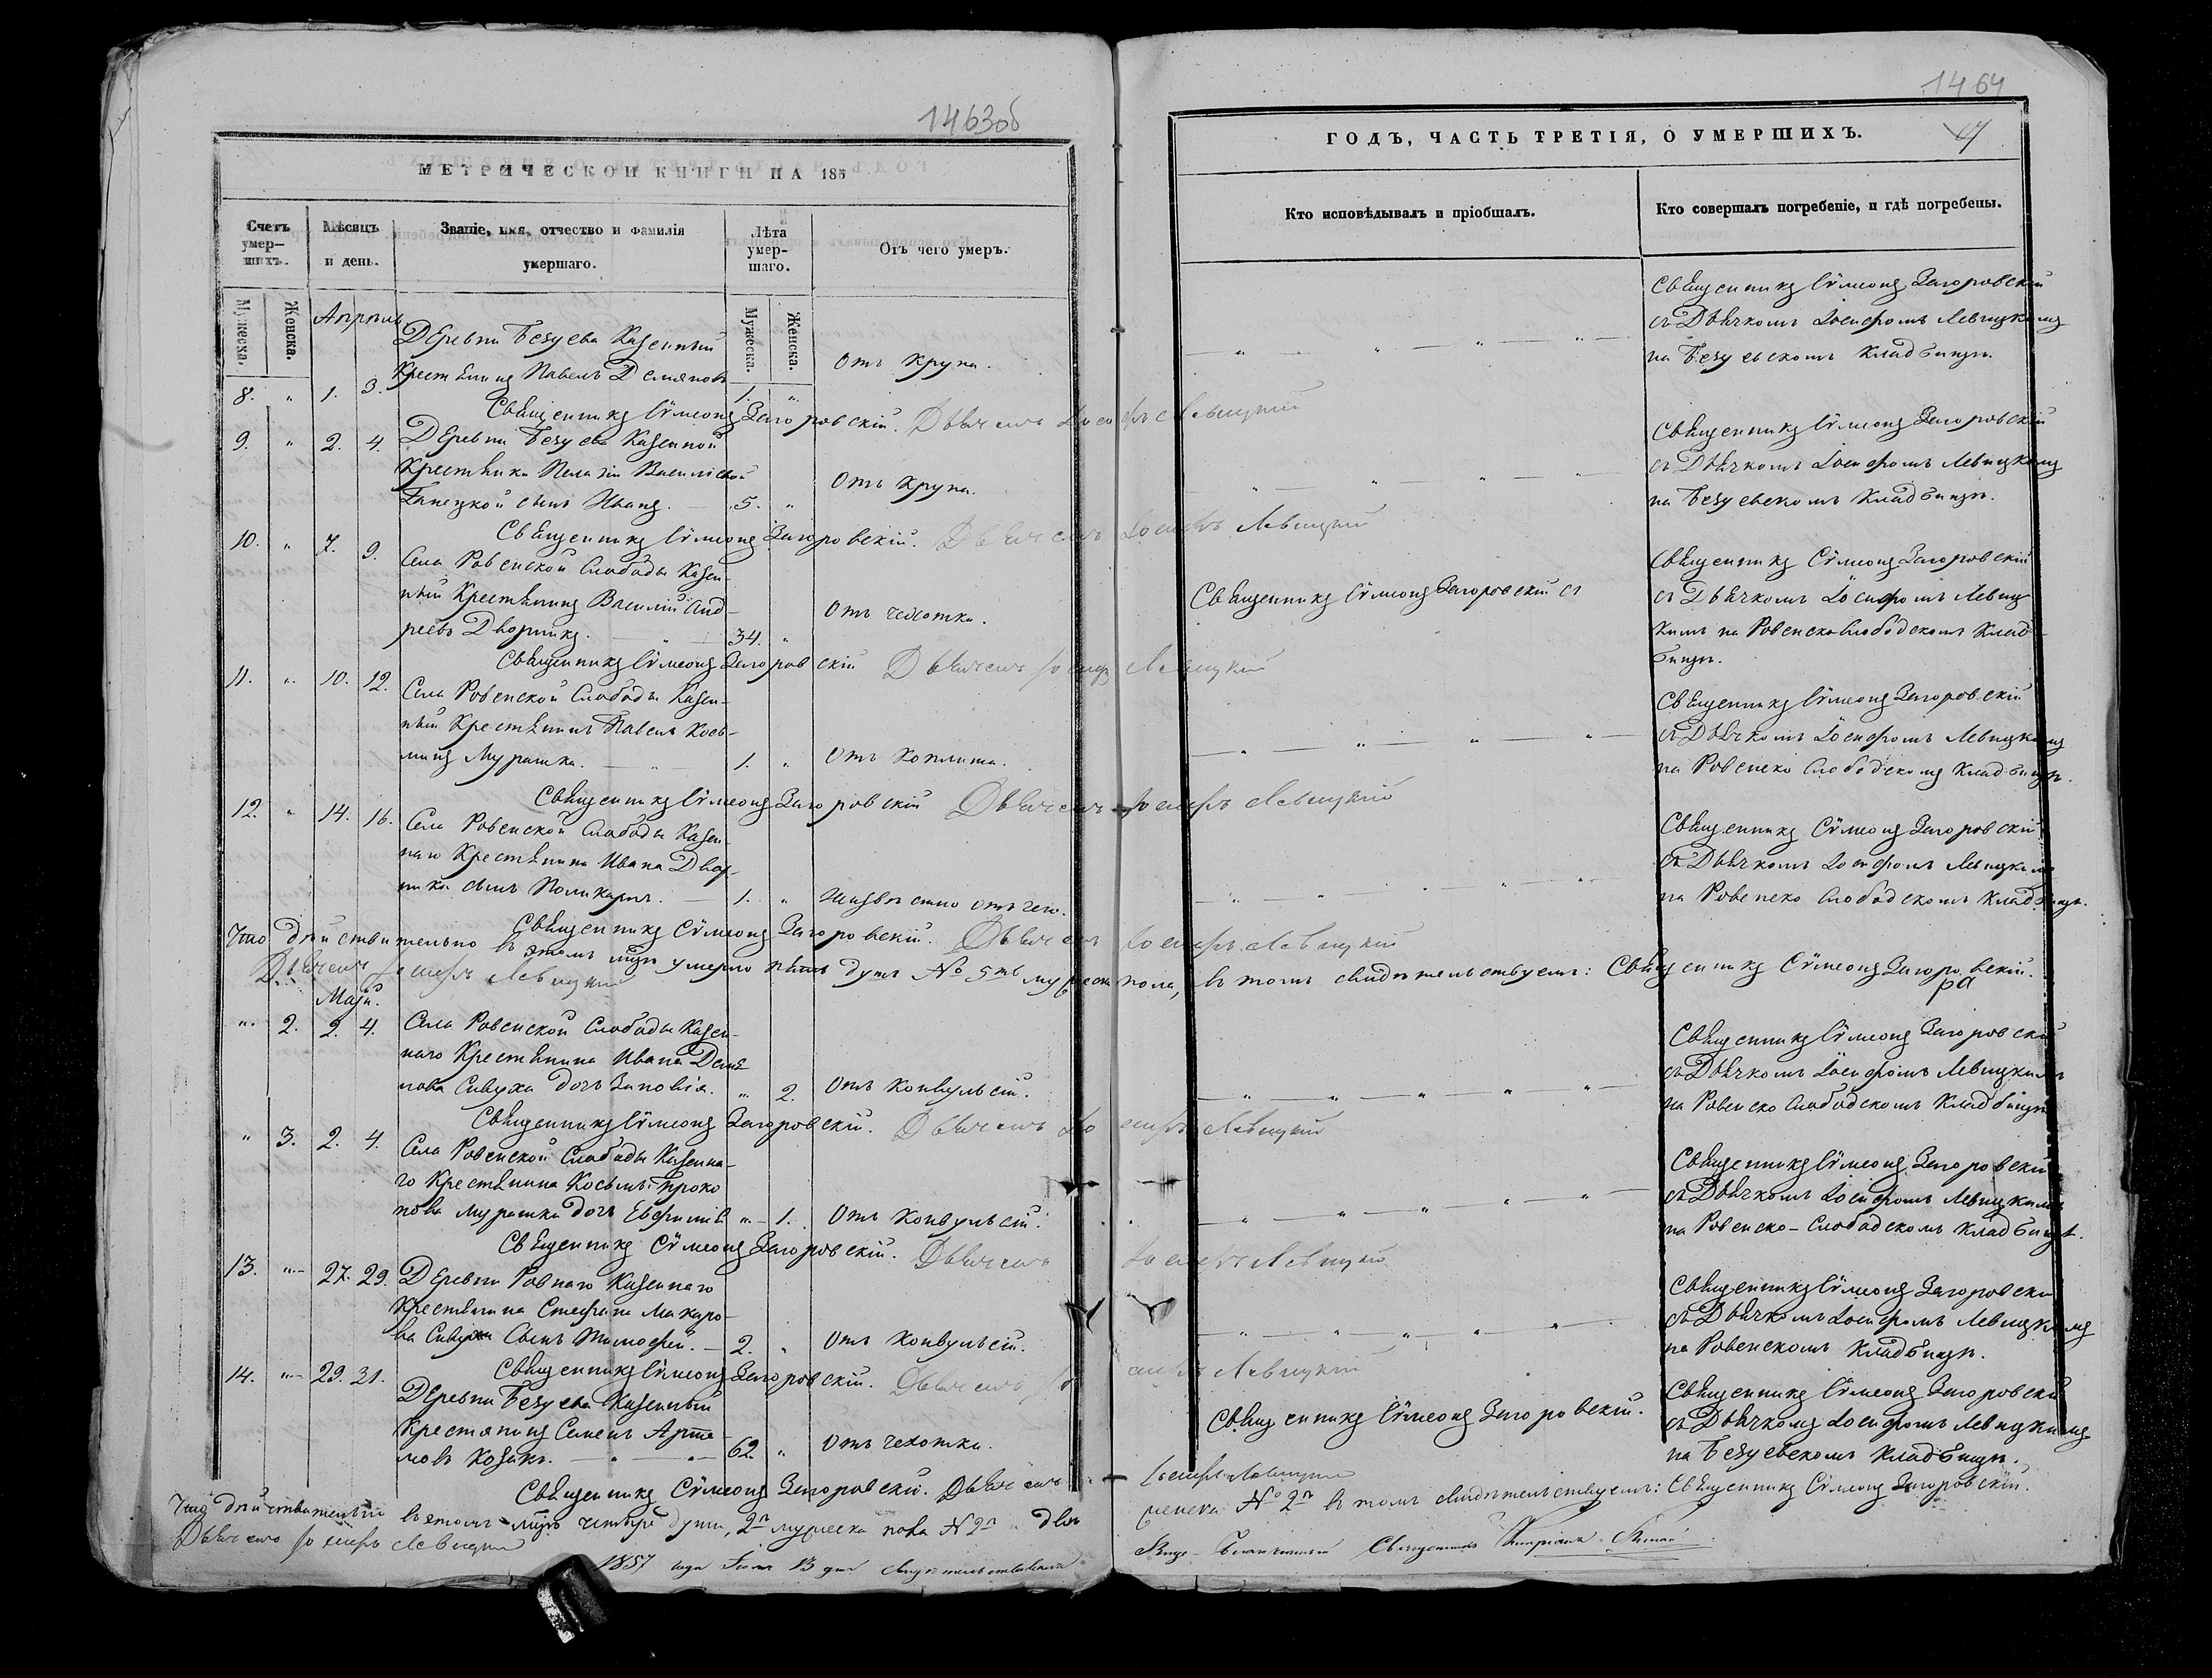 1463об
МЕТРИЧЕСКОЙ КНИГИ НА 185
Счетъ умер-шихъ.
Мѣсяцъ и день.
Званіе, имя, отчество и фамилія умершаго.
Лѣта умер-шаго.
Отъ чего умеръ.
Мужеска.
Женска.
Мужеска.
Женска.
Апрѣль
Деревни Безуева Казенный
Крестянинъ Павелъ Демяновъ
8. " 1. 3. 1. " Отъ Крупа.
Священникъ Сѵмеонъ Загоровскій. Дьячекъ Іосифъ Левицкій
9. " 2. 4. Деревни Безуева Казенной
Крестянки Пелагіи Василіевой
сынъ Иванъ. 5. " Отъ Крупа.
Священникъ Сѵмеонъ Загоровскій. Дьячекъ Іосифъ Левицкій
10. " 7. 9. Села Ровенской Слободы Казен-
ный Крестянинъ Василій Анд-
реевъ Дворникъ. 34. " Отъ чехотки.
Священникъ Сѵмеонъ Загоровскій Дьячекъ Іосифъ Левицкій
11. " 10. 12. Села Ровенской Слободы Казен-
ный Крестянинъ Павелъ Козь-
минъ Мурашка. 1. " Отъ Коклиша.
Священникъ Сѵмеонъ Загоровскій Дьячекъ Іосифъ Левицкій
12. " 14. 16. Села Ровенской Слободы Казен-
наго Крестянина Ивана Двор-
ника сынъ Поликарпъ. 1. " отъ чего.
Священникъ Сѵмеонъ Загоровскій. Дьячекъ Іосифъ Левицкій
Что дѣйствительно въ этомъ м-цѣ умерло душъ № 5ть мужеска пола, въ томъ свидѣтельствуемъ: Священникъ Сѵмеонъ Загоровскій.
Дьячекъ Іосифъ Левицкій
Май.
" 2. 2. 4. Села Ровенской Слободы Казен-
наго Крестянина Ивана Демя-
нова Сивуха дочь Зиновія. " 2. Отъ Конвульсіи.
Священникъ Сѵмеонъ Загоровскій. Дьячекъ Іосифъ Левицкій
" 3. 2. 4. Села Ровенской Слободы Казенна-
го Крестянина Косьмы Проко
пова Мурашка дочь " 1. Отъ Конвульсіи.
Священникъ Сѵмеонъ Загоровскій. Дьячекъ Іосифъ Левицкій
13. " 27. 29. Деревни Ровнаго Казеннаго
Крестянина Стефана Макаро-
ва Сивухи Сынъ Тимофей. 2. " Отъ Конвульсіи.
Священникъ Сѵмеонъ Загоровскій. Дьячекъ Іосифъ Левицкій
14. " 29. 31. Деревни Безуева Казенный
Крестянинъ Семенъ Арте-
мовъ Козакъ. 62. " Отъ чехотки.
Священникъ Сѵмеонъ Загоровскій. Дьячекъ Іосифъ Левицкій
Что дѣйствительно въ этомъ м-цѣ четыре души, 2п мужеска пола № 2п двѣ женска № 2п въ томъ свидѣтельствуемъ: Священникъ Сѵмеонъ Загоровскій.
Дьячекъ Іосифъ Левицкій
1857 года Іюля 13 дня свидѣтельствовалъ
Вице-Благочинный Священникъ
1464
ГОДЪ, ЧАСТЬ ТРЕТІЯ, О УМЕРШИХЪ.
Кто исповѣдывалъ и пріобщалъ.
Кто совершалъ погребеніе, и гдѣ погребены.
Священникъ Сѵмеонъ Загоровскій
съ Дьячкомъ Іосифомъ Левицкимъ
на Безуевскомъ Кладбищѣ.
Священникъ Сѵмеонъ Загоровскій
съ Дьячкомъ Іосифомъ Левицкимъ
на Безуевскомъ Кладбищѣ.
Священникъ Сѵмеонъ Загоровскій съ
Священникъ Сѵмеонъ Загоровскій
съ Дьячкомъ Іосифомъ Левиц
кимъ на Ровенскослободскомъ Клад-
бищѣ.
Священникъ Сѵмеонъ Загоровскій
съ Дьячкомъ Іосифомъ Левицкимъ
на Ровенско Слободскомъ Кладбищѣ.
Священникъ Сѵмеонъ Загоровскій
съ Дьячкомъ Іосифомъ Левицкимъ
на Ровенско Слободскомъ Кладбищѣ.
Священникъ Сѵмеонъ Загоровскій
съ Дьячкомъ Іосифомъ Левицкимъ
на Ровенско Слободскомъ Кладбищѣ
Священникъ Сѵмеонъ Загоровскій
съ Дьячкомъ Іосифомъ Левицкимъ
на Ровенско-Слободскомъ Кладбищѣ.
Священникъ Сѵмеонъ Загоровскій
съ Дьячкомъ Іосифомъ Левицкимъ
на Ровенскомъ Кладбищѣ.
Священникъ Сѵмеонъ Загоровскій.
Священникъ Сѵмеонъ Загоровскій
съ Дьячкомъ Іосифомъ Левицкимъ
на Безуевскомъ Кладбищѣ.